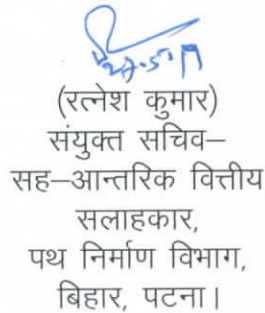 (रत्नेश कुमार)
संयुक्त सचिव–
सह–आन्तरिक वित्तीय
सलाहकार,
पथ निर्माण विभाग,
बिहार, पटना।